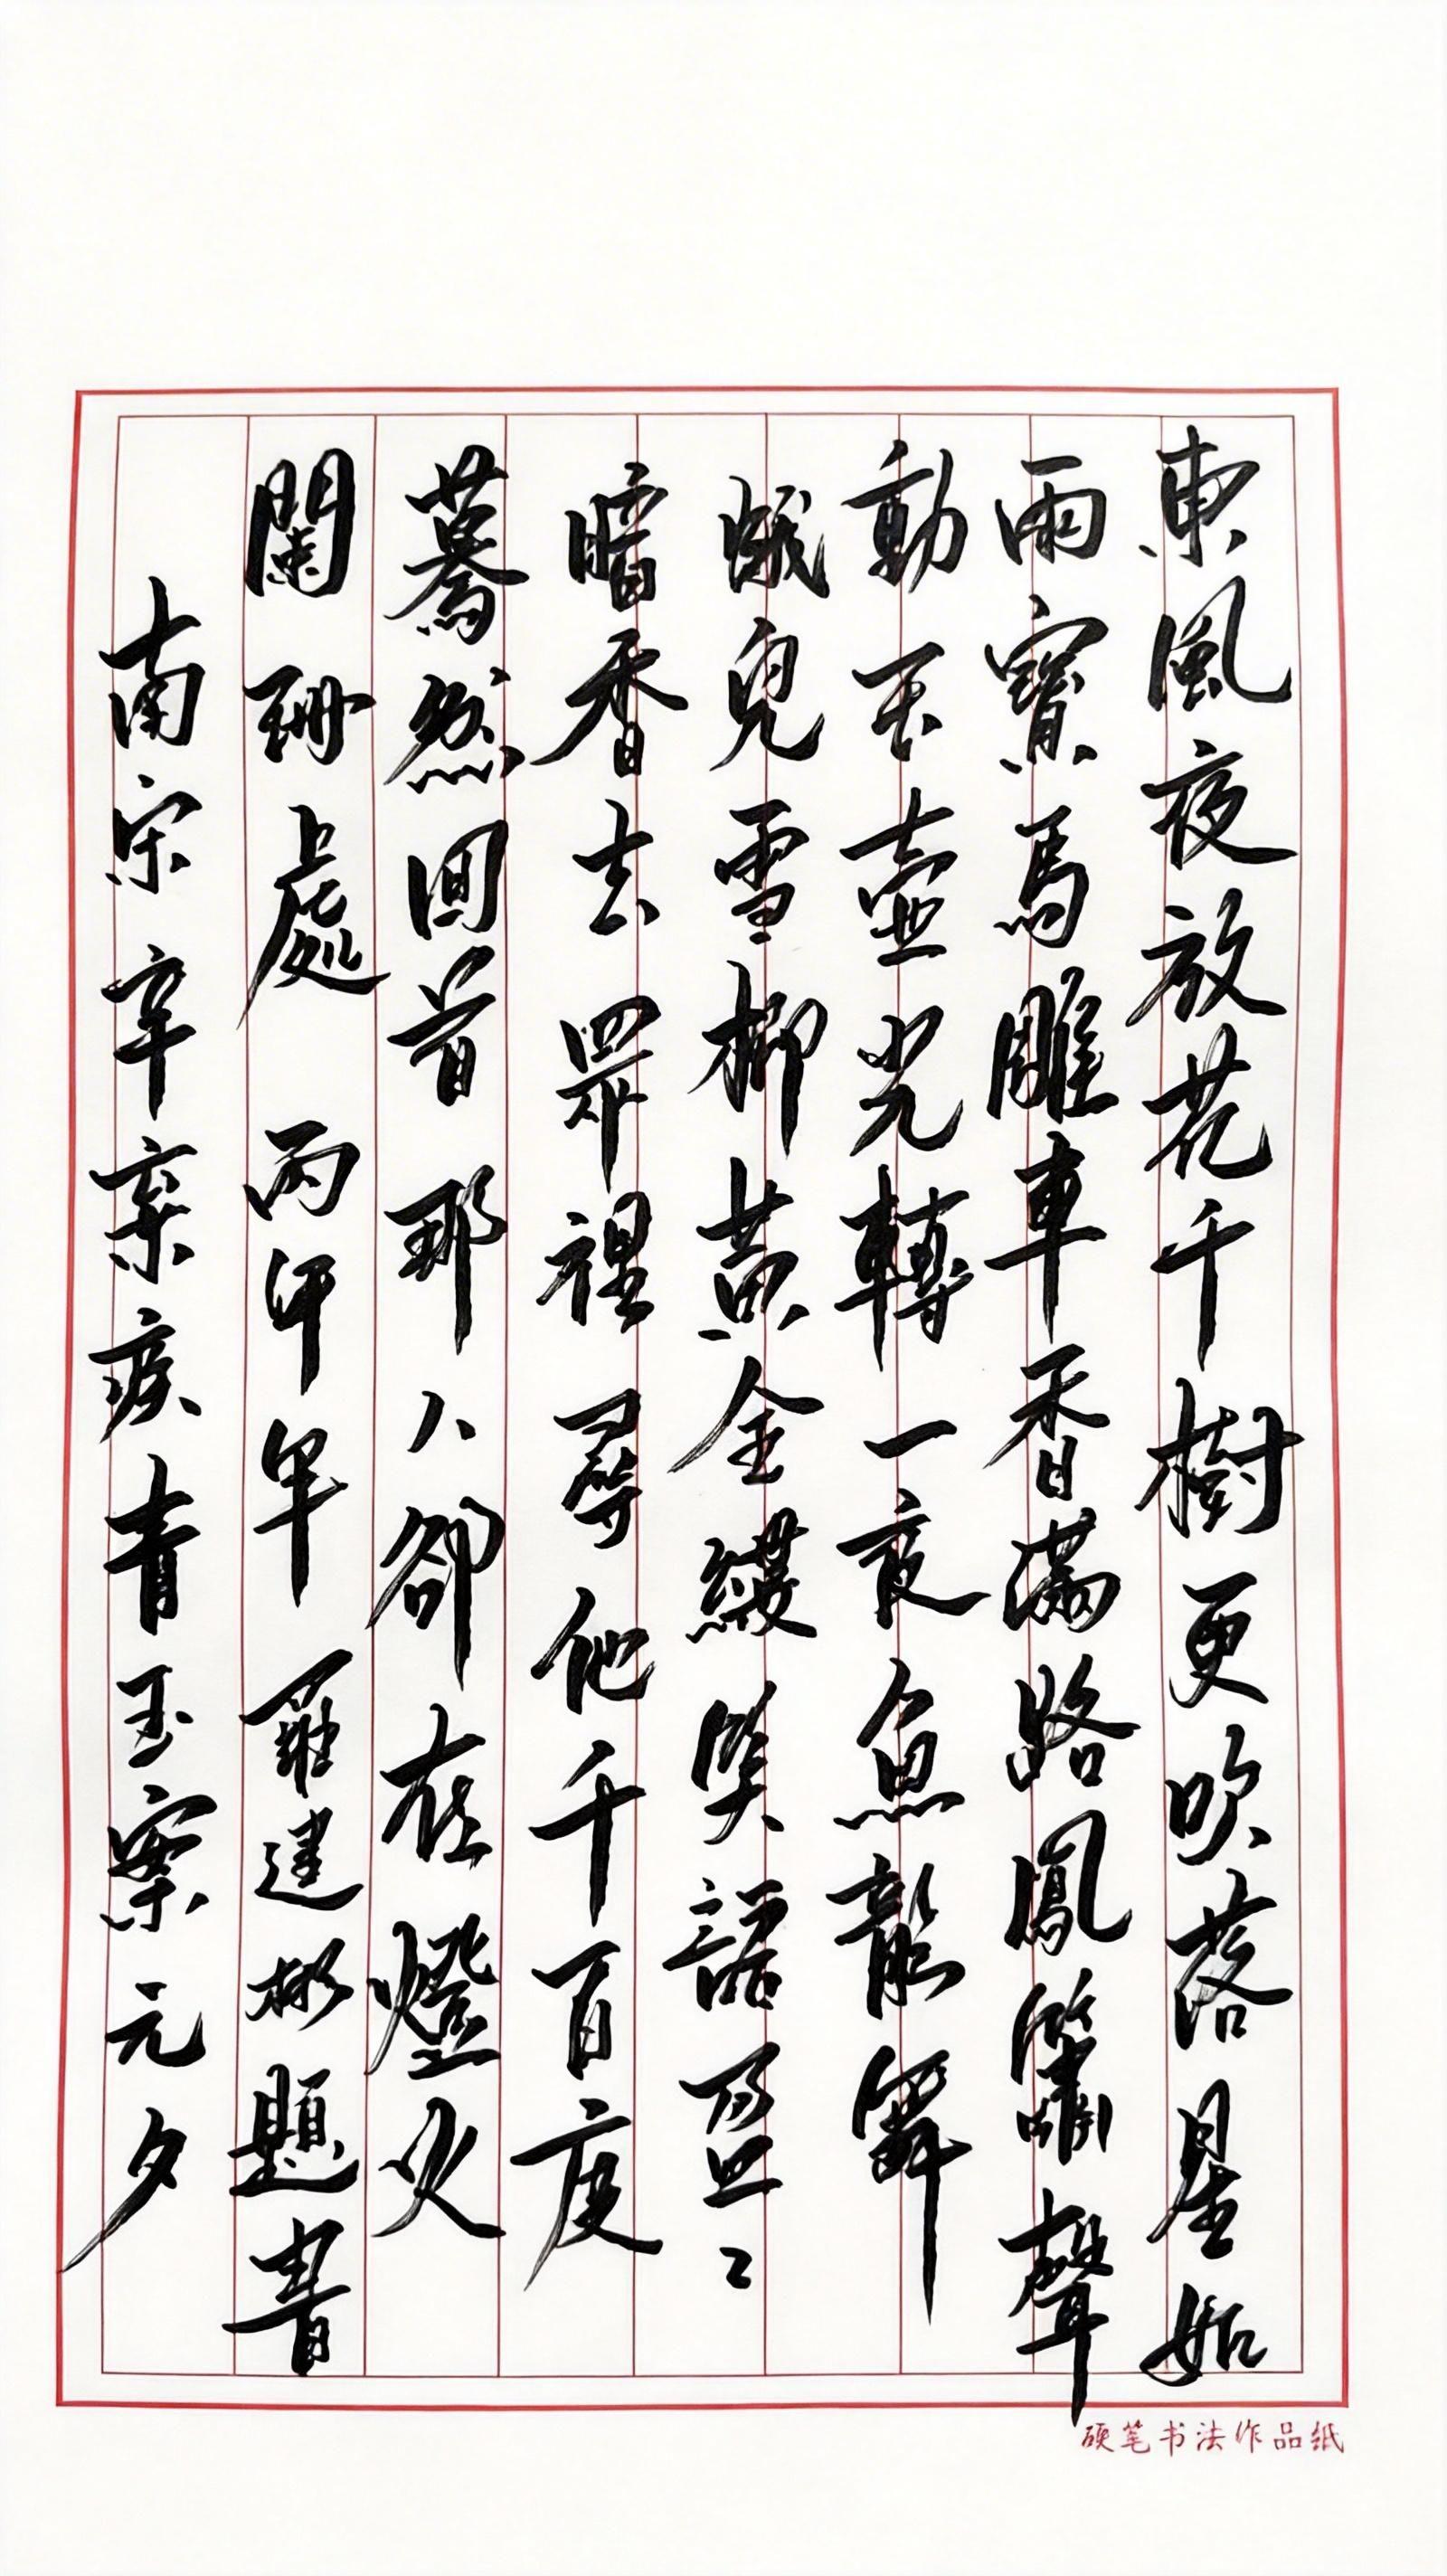 東風夜放花千樹更吹落星如
雨寶馬雕車香滿路鳳簫聲
動玉壺光轉一夜魚龍舞
蛾兒雪柳黃金縷笑語盈〻
暗香去眾裡尋他千百度
驀然回首那人卻在燈火
闌珊處 丙午年 羅建彬題書
南宋辛棄疾青玉案元夕
硬笔书法作品纸